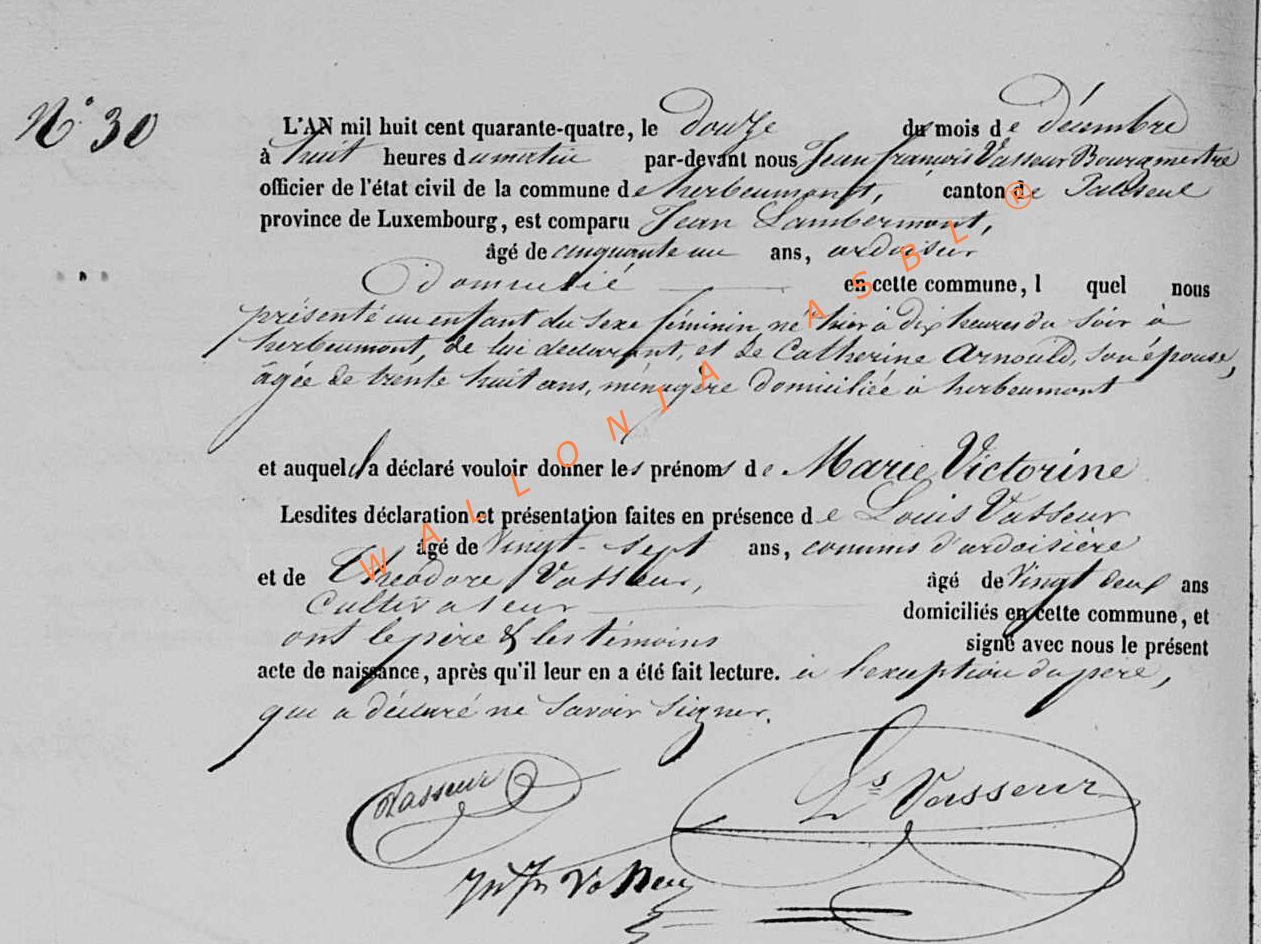 N.° 30
L'AN mil huit cent quarante-quatre, le Douze du mois de décembre
à huit heures du matin par-devant nous Jean françois Vasseur Bourgmestre
officier de l'état civil de la commune de herbeumont, canton de Paliseul
province de Luxembourg, est comparu Jean Lambermont,
âgé de cinquante un ans, ardoisier
Domicilié en cette commune, l quel nous
présenté un enfant du sexe féminin, né hier à dix heures du soir à
herbeumont, de lui déclarant, et de Catherine Arnould, son épouse,
âgée de trente huit ans, ménagère domiciliée à herbeumont
et auquel il a déclaré vouloir donner les prénoms de Marie Victorine
Lesdites déclaration et présentation faites en présence de Louis Vasseur
âgé de Vingt-sept ans, commis d'ardoisière
et de Théodore Vasseur, âgé de Vingt deux ans
Cultivateur domiciliés en cette commune, et
ont le père & les témoins signé avec nous le présent
acte de naissance, après qu'il leur en a été fait lecture. à l'exception du père,
qui a déclaré ne savoir signer.
Vasseur
Ls Vasseur
Vasseur
WALLONIA ASBL ®